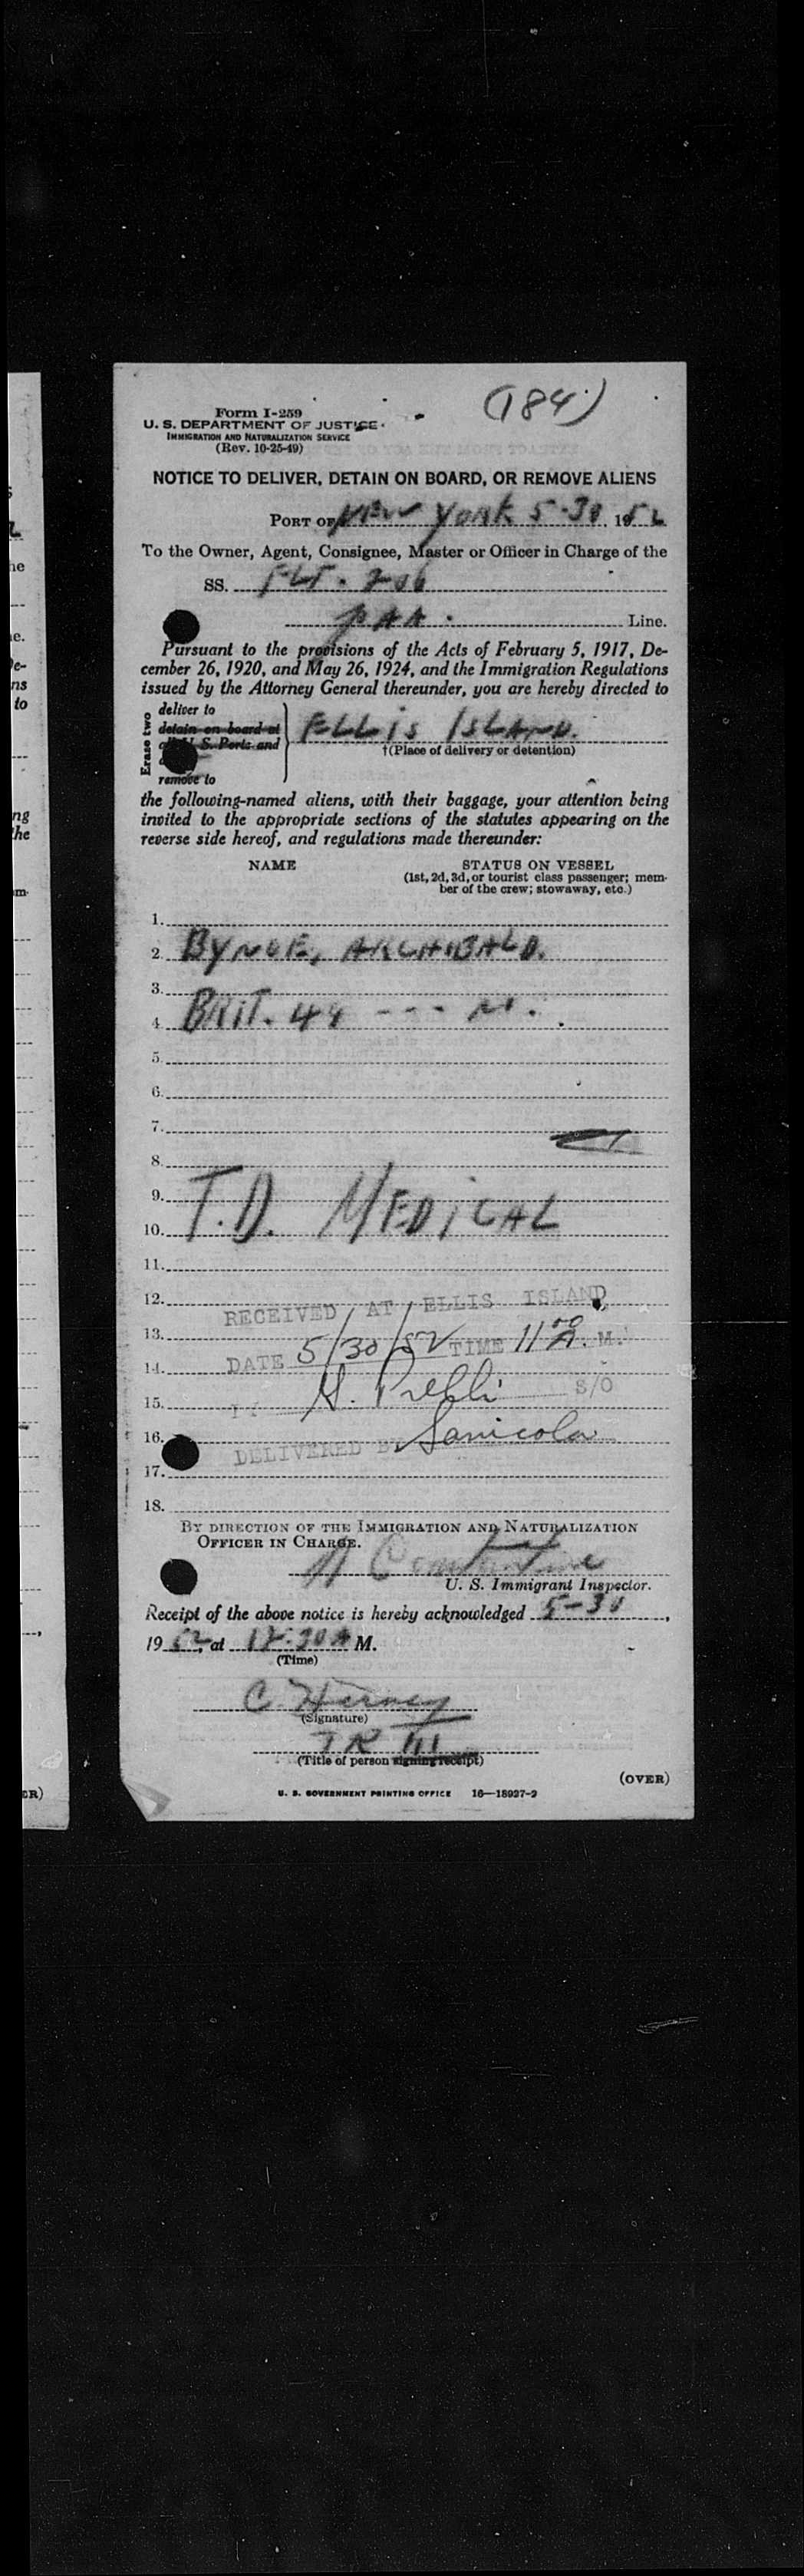 (184)
Form I-259
U. S. DEPARTMENT OF JUSTICE
IMMIGRATION AND NATURALIZATION SERVICE
(Rev. 10-25-49)
NOTICE TO DELIVER, DETAIN ON BOARD, OR REMOVE ALIENS
PORT OF New York 5-30, 1952
To the Owner, Agent, Consignee, Master or Officer in Charge of the
SS. FLT. 206
PAA. Line.
Pursuant to the provisions of the Acts of February 5, 1917, De-
cember 26, 1920, and May 26, 1924, and the Immigration Regulations
issued by the Attorney General thereunder, you are hereby directed to
Erase two
deliver to
detain on board at
U. S. Ports and
remove to
ELLIS ISLAND.
†(Place of delivery or detention)
the following-named aliens, with their baggage, your attention being
invited to the appropriate sections of the statutes appearing on the
reverse side hereof, and regulations made thereunder:
NAME STATUS ON VESSEL
(1st, 2d, 3d, or tourist class passenger; mem-
ber of the crew; stowaway, etc.)
1.
2. BYNOE, ARCHIBALD.
3.
4. BRIT. 44 --- M.
5.
6.
7.
8.
9.
10. T.D. MEDICAL
11.
12.
RECEIVED AT ELLIS ISLAND,
13.
DATE 5/30/52 TIME 11 00 A. M.
14.
15. S/O
16.
DELIVERED BY Sanicola
17.
18.
BY DIRECTION OF THE IMMIGRATION AND NATURALIZATION
OFFICER IN CHARGE.
U. S. Immigrant Inspector.
Receipt of the above notice is hereby acknowledged 5-30,
1952, at M.
(Time)
C.
(Signature)
TR III
(Title of person signing receipt)
(OVER)
U. S. GOVERNMENT PRINTING OFFICE 16—18927-2